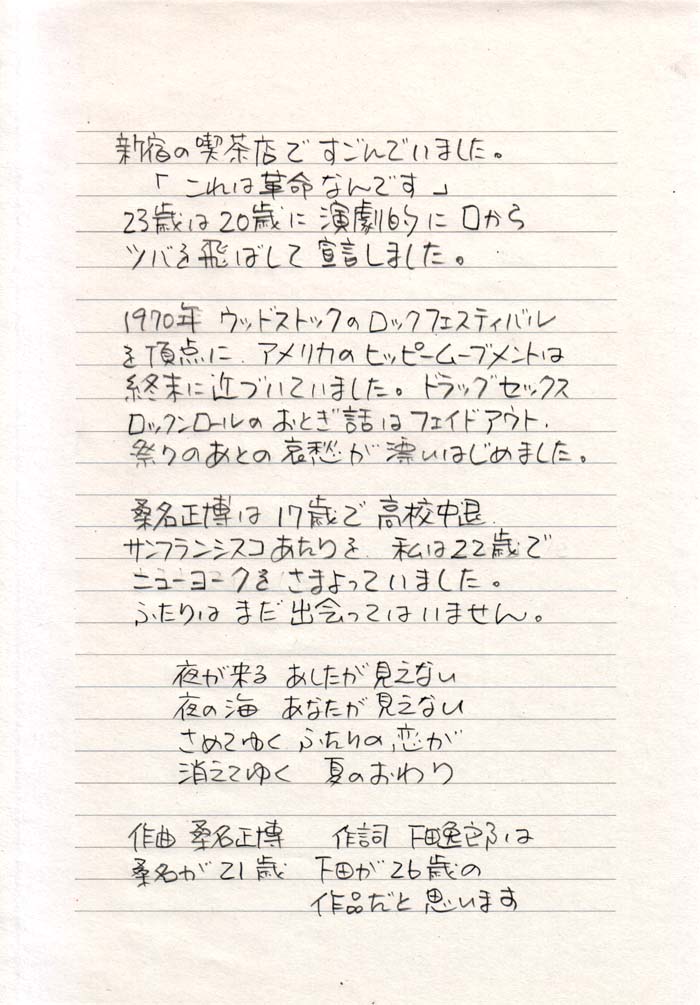 新宿の喫茶店ですごんでいました。
「これは革命なんです」
23歳は20歳に演劇的に口から
ツバを飛ばして宣言しました。
1970年 ウッドストックのロックフェスティバル
を頂点に、アメリカのヒッピームーブメントは
終末に近づいていました。ドラッグセックス
ロックンロールのおとぎ話はフェイドアウト、
祭りのあとの哀愁が漂いはじめました。
桑名正博は17歳で高校中退、
サンフランシスコあたりを、私は22歳で
ニューヨークをさまよっていました。
ふたりはまだ出会ってはいません。
夜が来る あしたが見えない
夜の海 あなたが見えない
さめてゆく ふたりの恋が
消えてゆく 夏のおわり
作曲 桑名正博 作詞 下田逸郎は
桑名が21歳 下田が26歳の
作品だと思います